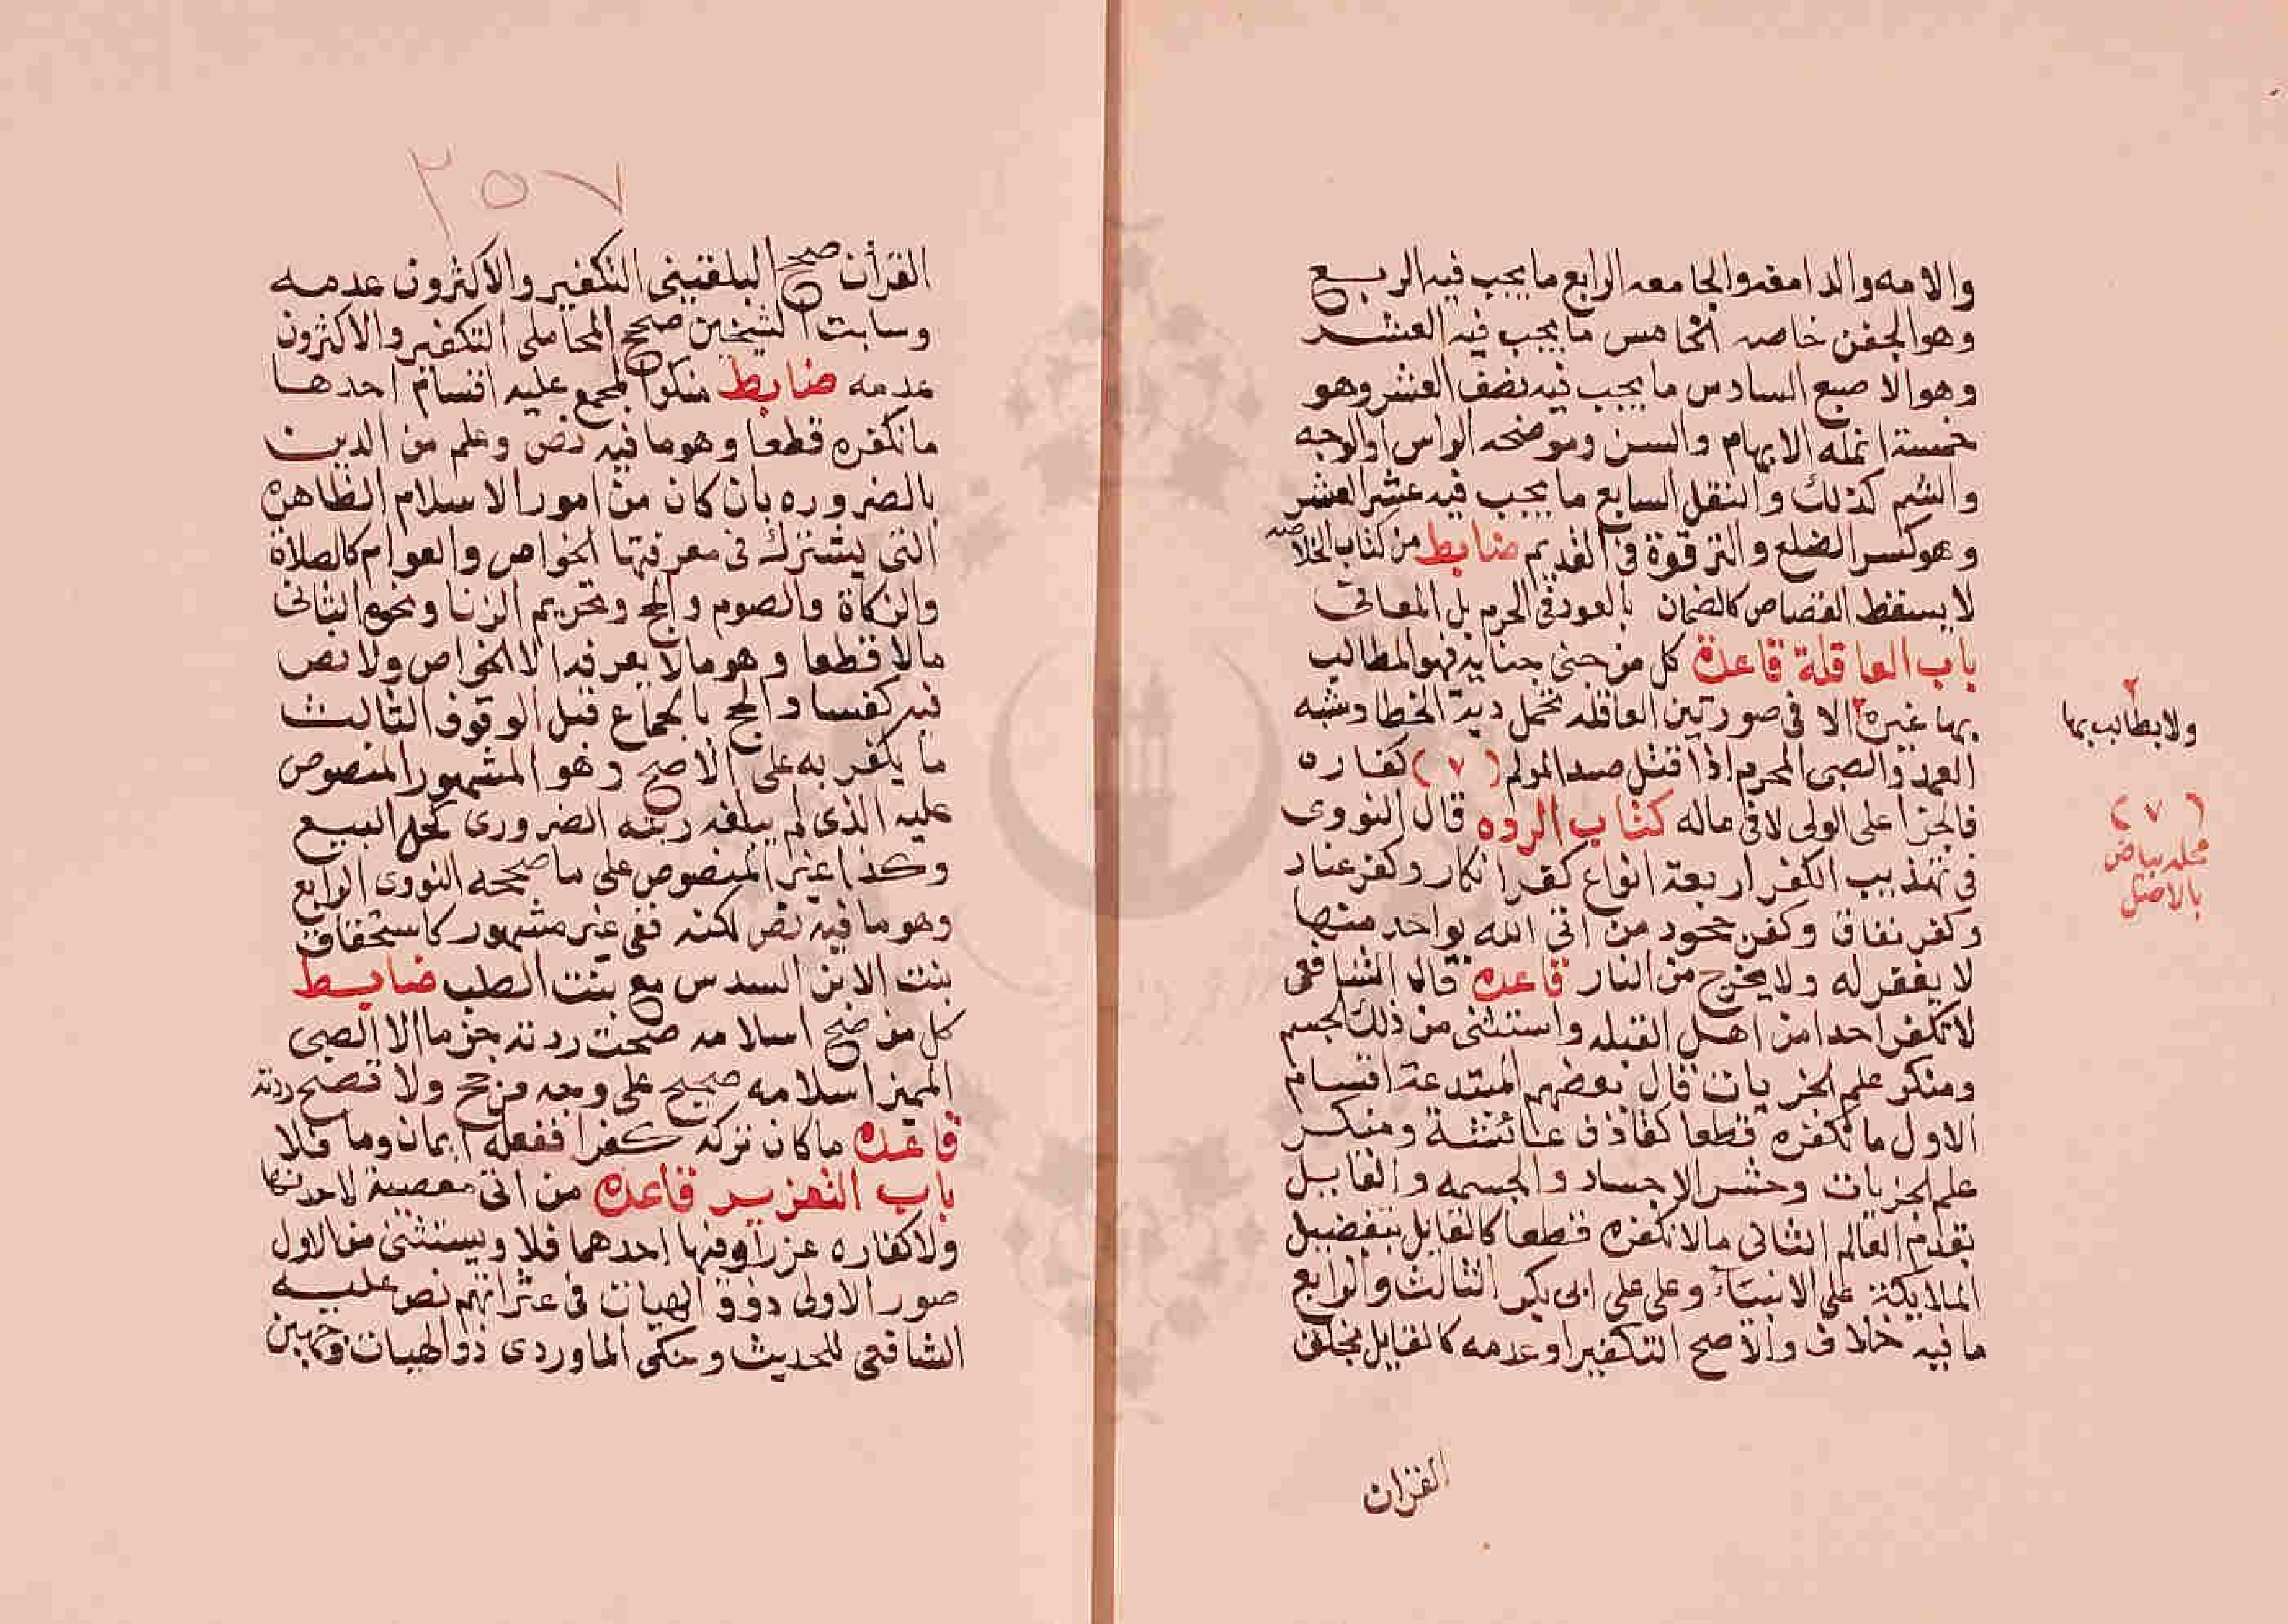 والامه والدامغه والجامعه الرابع ما يجب فيه الربع
وهو الجفن خاصه الخامس ما يجب فيه العشر
وهو الاصبع السادس ما يجب فيه نصف العشر وهو
خمسة انمله الابهام والسن وموضحه الراس او الوجه
والشم كذلك والنقل السابع ما يجب فيه عشر العشر
وهو كسر الضلع والترقوة فى القديم ضابط من كتاب الخلاصه
لا يسقط القصاص كالضمان بالعود فى الحرم بل المعانى
باب العاقلة قاعدة كل من جنى جناية فهو المطالب
بها غيره الا فى صورتين العاقله تحمل دية الخطا وشبه
ولا يطالب بها
العمد والصبى المحرم اذا قتل صيد المولم (٧) كفاره
فالجزا على الولى لا فى ماله كتاب الرده قال النووى
(٧)
محله بياض
بالاصل
فى تهذيب الكفر اربعة انواع كفر انكار وكفر عناد
وكفر نفاق وكفر جحود من اتى الله بواحد منها
لا يغفر له ولا يخرج من النار قاعده قال الشافعى
لا نكفر احدا من اهل القبله واستثنى من ذلك المجسم
ومنكر علم الجزيات قال بعضهم المبتدعة اقسام
الاول ما نكفره قطعا كقاذف عائشة ومنكر
علم الجزيات وحشر الاجساد والمجسمه والقايل
بقدم العالم الثانى ما لا نكفره قطعا كالقايل بتفضيل
الملايكة على الانبياء وعلى على ابى بكر الثالث والرابع
ما فيه خلاف والاصح التكفير او عدمه كالقايل بخلق
القران
٢٥٧
القرأن صحح البلقينى التكفير والاكثرون عدمه
وسابت الشيخين صحح المحاملى التكفير والاكثرون
عدمه ضابط منكر المجمع عليه اقسام احدها
ما نكفره قطعا وهو ما فيه نص وعلم من الدين
بالضروره بان كان من امور الاسلام الظاهره
التى يشترك فى معرفتها الخواص والعوام كالصلاة
والزكاة والصوم والحج وتحريم الزنا ونحوه الثانى
ما لا قطعا وهو ما لا يعرفه الا الخواص ولا نص
فيه كفساد الحج بالجماع قبل الوقوف الثالث
ما يكفر به على الاصح وهو المشهور المنصوص
عليه الذى لم يبلغ رتبه الضرورى كحل البيع
وكذا غير المنصوص على ما صححه النووى الرابع
وهو ما فيه نص لكنه فى غير مشهور كاستحقاق
بنت الابن السدس مع بنت الصلب ضابط
كل من صح اسلامه صحت ردته جزما الا الصبى
المميز اسلامه صحيح على وجه مرجح ولا تصح ردته
قاعده ما كان تركه كفرا ففعله ايمان وما فلا
باب التعزير قاعده من اتى معصية لا حد فيها
ولا كفاره عزر او فيها احدهما فلا ويستثنى من الاول
صور الاولى ذوو الهيات فى عثراتهم نص عليه
الشافعى للحديث وحكى الماوردى ذو الهيات وجهين